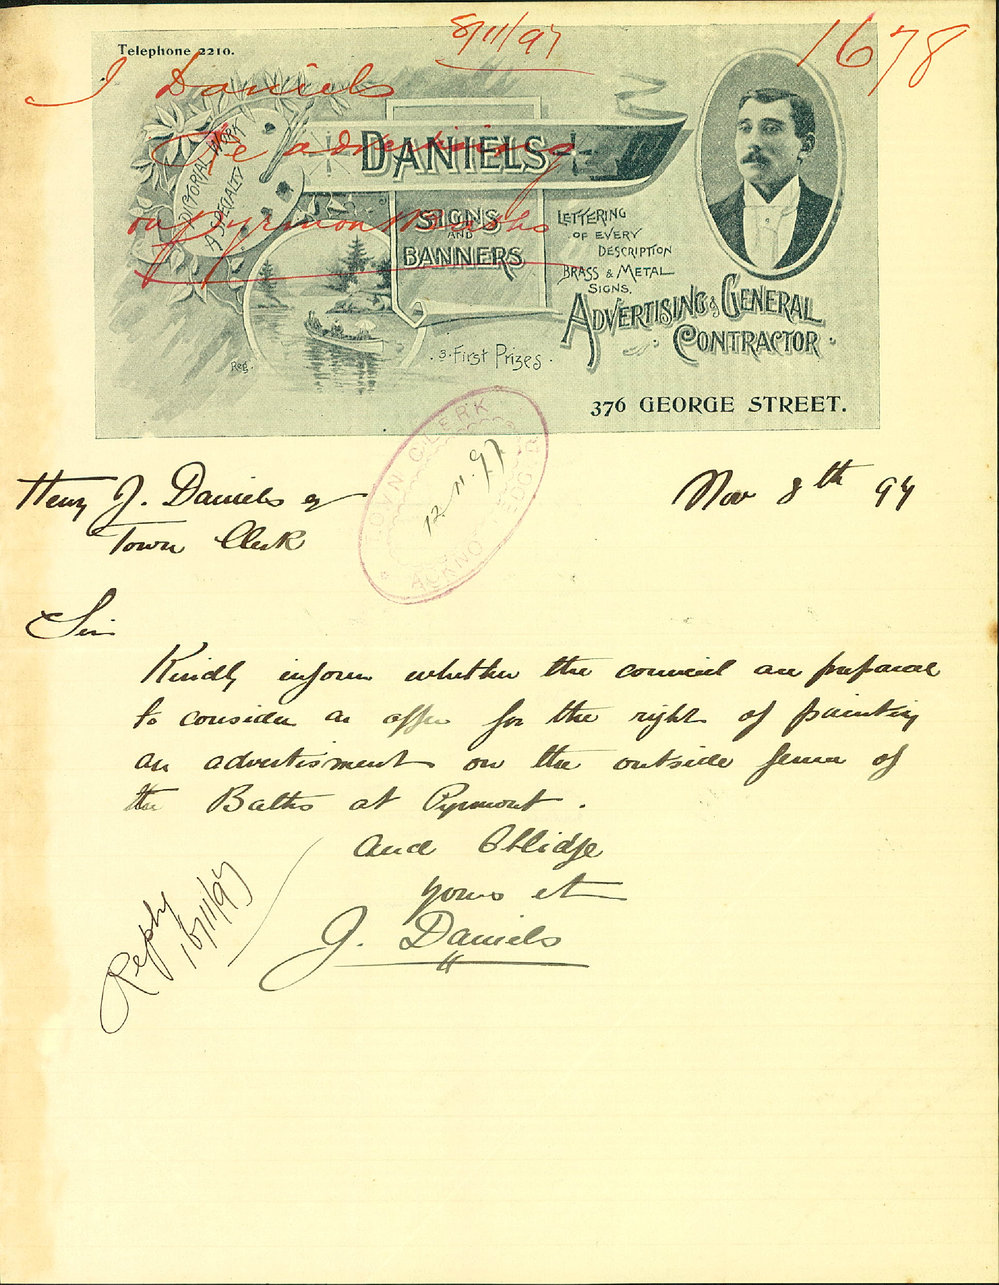 8/11/97
1678
Telephone 2210.
J Daniels
Re advertising
on Pyrmont Baths
PICTORIAL WORK
A SPECIALTY
DANIELS
SIGNS
AND
BANNERS
LETTERING
OF EVERY
DESCRIPTION
BRASS & METAL
SIGNS.
ADVERTISING & GENERAL
CONTRACTOR
Reg.
3 First Prizes
376 GEORGE STREET.
TOWN CLERK
12.11.97
ACKNOWLEDGED
Henry J. Daniels esq
Nov 8th 97
Town Clerk
Sir
Kindly inform whether the council are prepared
to consider an offer for the right of painting
an advertisment on the outside fence of
the Baths at Pyrmont.
and Oblidge
yours etc
J. Daniels
Reply
16/11/97